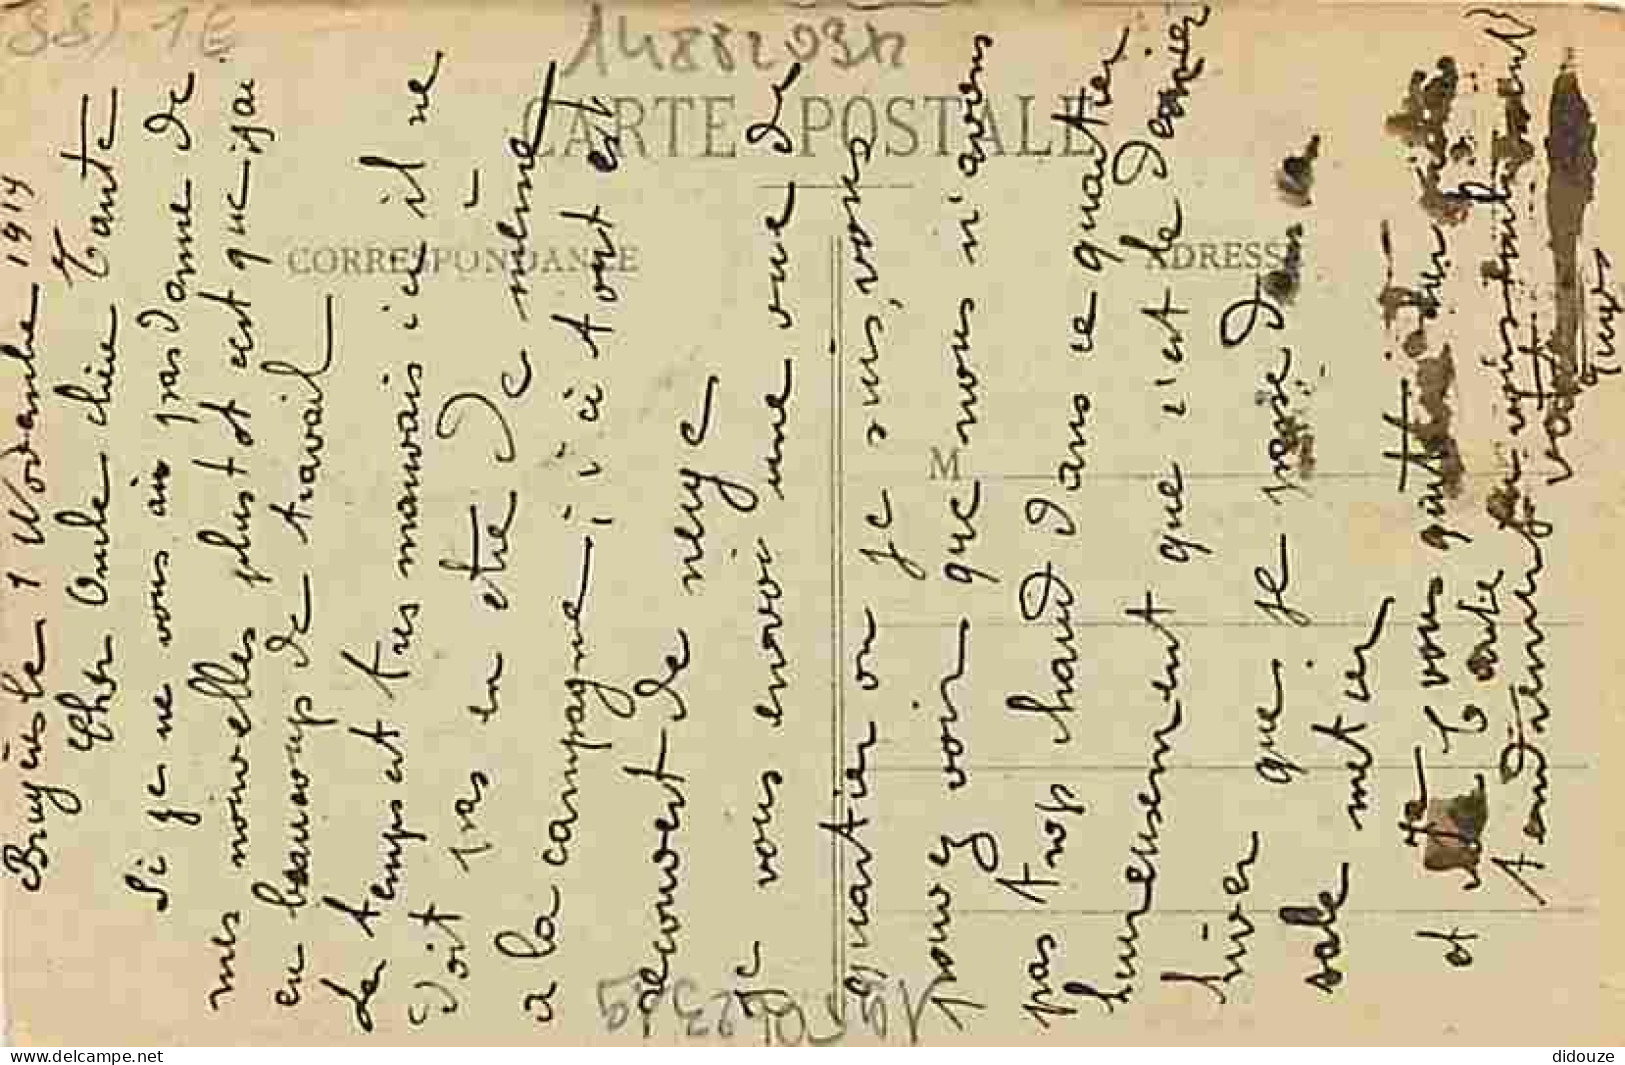 SS) 1€
14882093k
CARTE POSTALE
CORRESPONDANCE
ADRESSE
M
Bruyères le 1 Novembre 1914
Cher Oncle chère Tante
Si je ne vous ais pas donne de
mes nouvelles plustot cest que j'ai
eu beaucoup de travail
Le temps est tres mauvais ici il ne
doit pas en etre de même
a la campagne, ici tout est
recouvert de neige
Je vous envoie une vue du
quartier ou je suis, vous
pouvez voir que nous n'avons
pas trop chaud dans ce quartier
heureusement que c'est le dernier
hiver que je passe dans ce
sale metier
Je vous quitte
et Tante
tendrement
didouze